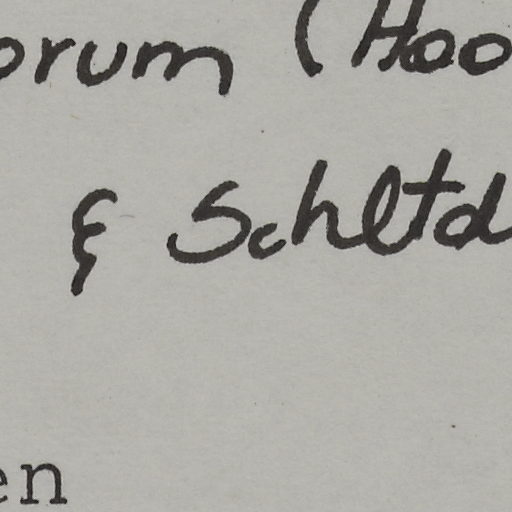 orum (Hoo
& Schltd
en